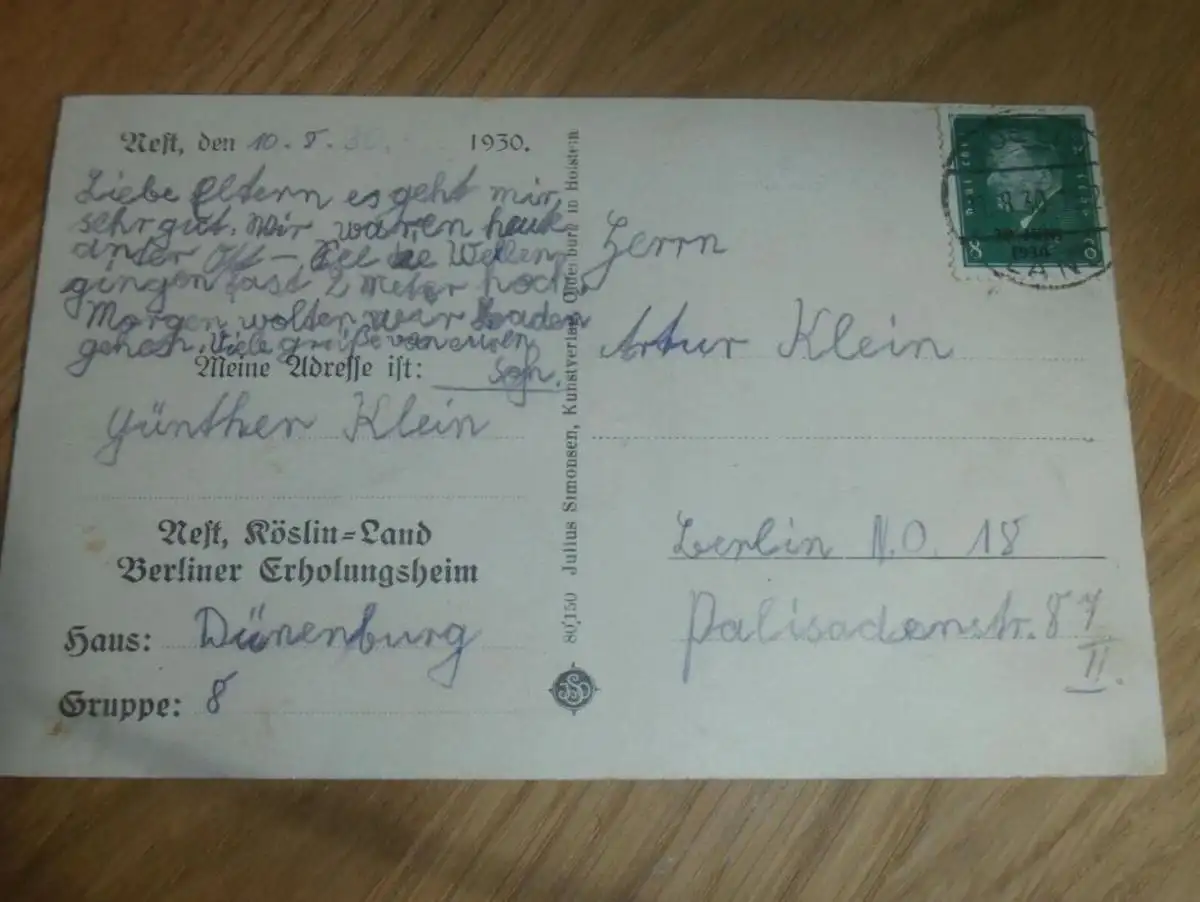 Nest, den 10. 8. 30. 1930.
Liebe Eltern es geht mir
sehr gut. Wir waren heute
an der Ost-See die Wellen
gingen fast 2 Meter hoch.
Morgen wolten wir baden
gehen. Viele grüße von euren
Sohn.
Meine Adresse ist:
Günther Klein
Nest, Köslin-Land
Berliner Erholungsheim
Haus: Dünenburg
Gruppe: 8
80,150 Julius Simonsen, Kunstverlag, Oldenburg in Holstein
Herrn
Artur Klein
Berlin N.O. 18
Palisadenstr. 87
II.
8
8
8.30
1930